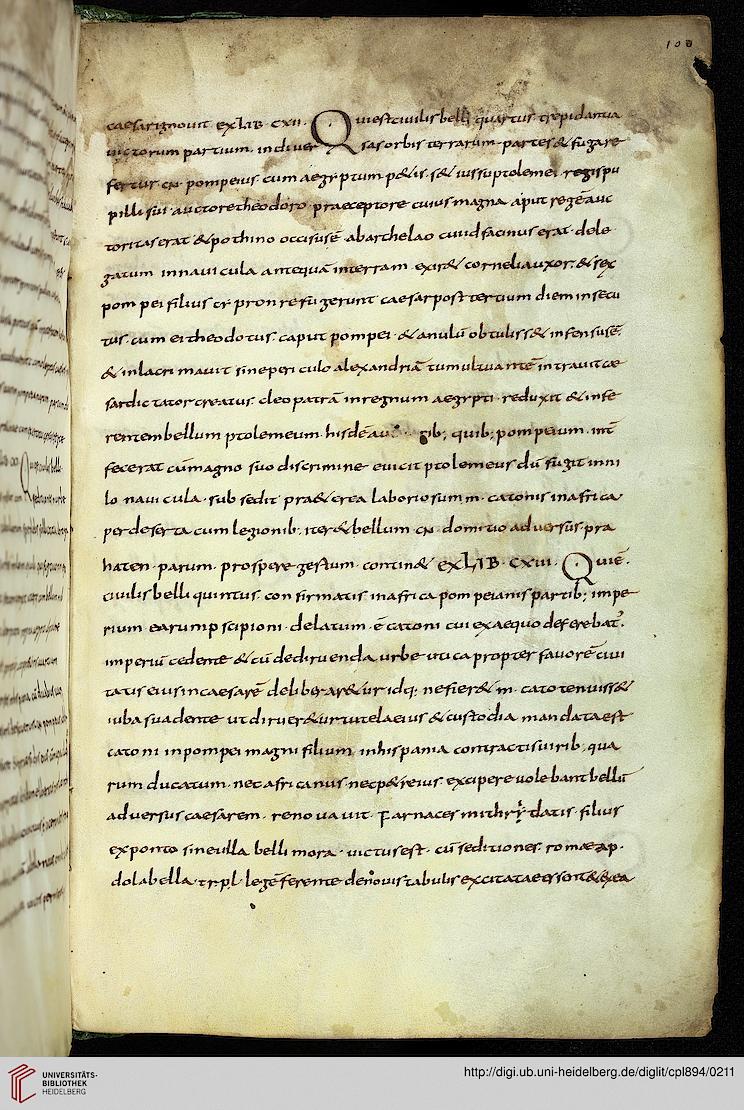 100
caesar ignovit · ex LIB · CXII · Qui est civilis belli quartus trepidantia
victorum partium · in diversas orbis terrarum partes & fugare
fertur cn pompeius cum aegyptum p&is·s& iussu ptolemei regis pu
pilli sui · auctore theodoro praeceptore cuius magna aput regē auc
toritas erat & pothino occisus ē · ab archelao cui id facinus erat · dele
gatum in navi cula antequā in terram exir& cornelia uxor · & sex
pompei filius cypron refugerunt caesar post tertium diem insecu
tus · cum ei theodotus · caput pompei · & anulū obtuliss& infensus ē
& inlacrimavit sine periculo alexandriā tumultuantē intravit cae
sar dictator creatus · cleopatrā in regnum aegypti · reduxit & infe
rentem bellum ptolemeum · hisdē quib; pompeium · int
fecerat cū magno suo discrimine evicit ptolemeus dū fugit in ni
lo navi cula · sub sedit pra&erea laboriosum m · catonis in africa
per deserta cum legionib · iter & bellum cn · domitio adversus pra
haten · parum · prospere gestum · contin& ex LIB · CXIII · Qui ē ·
civilis belli quintus · confirmatis in africa pompeianis partib; impe
rium earum p scipioni · delatum · ē catoni cui ex aequo deferebat̄ ·
imperiū cedente & cū de diruenda urbe utica propter favorē civi
tatis eius in caesarē deliberar&ur idq; ne fier& m · cato tenuiss&
iuba suadente ut diruer&ur tutela eius & custodia mandata est
catoni in pompei magni filium in hispania contractis virib · qua
rum ducatum · nec africanus · nec p&reius · excipere volebant bellū
adversus caesarem · renovavit · farnaces mithrydatis · filius
ex ponto sine ulla belli mora · victus est · cū seditiones romae a p ·
dolabella · tr · pl · legē ferente de novis tabulis excitatae essent & ex ea
UNIVERSITÄTS-
BIBLIOTHEK
HEIDELBERG
http://digi.ub.uni-heidelberg.de/diglit/cpl894/0211